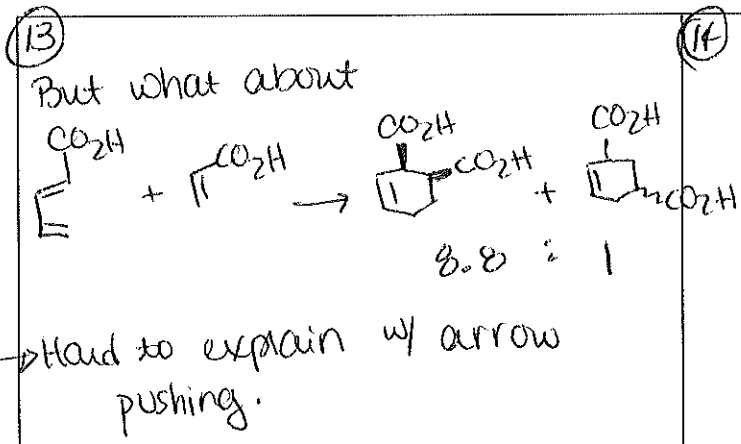 13
14
But what about
CO2H
+
CO2H
→
CO2H
CO2H
+
CO2H
CO2H
8.8 : 1
→ Hard to explain w/ arrow
pushing.